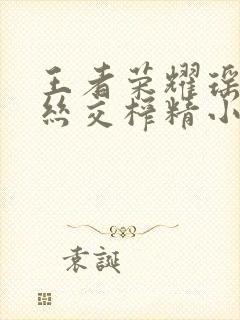 王者荣耀瑶
丝交榨精小
袁誕